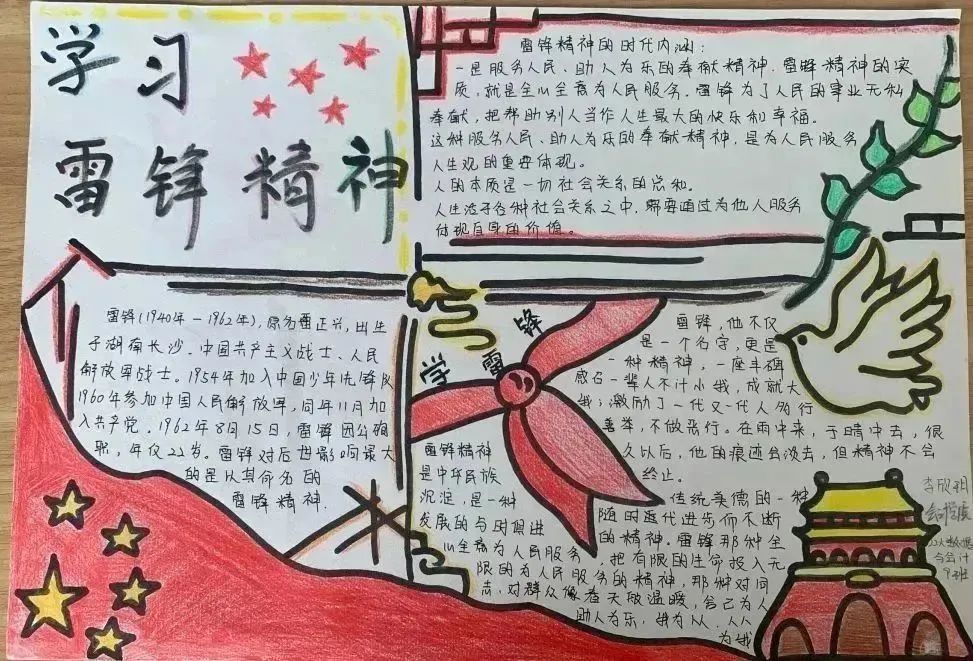 学习
雷锋精神
雷锋精神的时代内涵：
一是服务人民、助人为乐的奉献精神。雷锋精神的实
质，就是全心全意为人民服务。雷锋为了人民的事业无私
奉献，把帮助别人当作人生最大的快乐和幸福。
这种服务人民、助人为乐的奉献精神，是为人民服务
人生观的重要体现。
人的本质是一切社会关系的总和。
人生活于各种社会关系之中，需要通过为他人服务
体现自身的价值。
雷锋(1940年－1962年)，原名雷正兴，出生
于湖南长沙。中国共产主义战士、人民
解放军战士。1954年加入中国少年先锋队
1960年参加中国人民解放军，同年11月加
入共产党。1962年8月15日，雷锋因公殉
职，年仅22岁。雷锋对后世影响最大
的是以其命名的
雷锋精神.
学雷锋
雷锋，他不仅
是一个名字，更是
一种精神，一座丰碑
感召一辈人不计小我，成就大
我；激励了一代又一代人多行
善举，不做恶行。在雨中来，于晴中去，很
久以后，他的痕迹会淡去，但精神不会
终止。
雷锋精神
是中华民族
沉淀，是一种
发展的与时俱进
传统美德的一种
随时代进步而不断
的精神。雷锋那种全
心全意为人民服务，把有限的生命投入无
限的为人民服务的精神，那种对同
志，对群众像春天般温暖，舍己为人
助人为乐，我为人人，人人
为我
9班